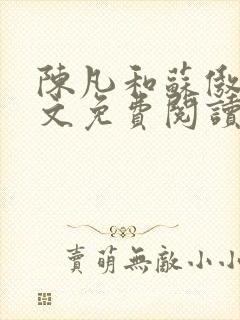 陳凡和蘇傲
文免費閱讀
賣萌無敵小小